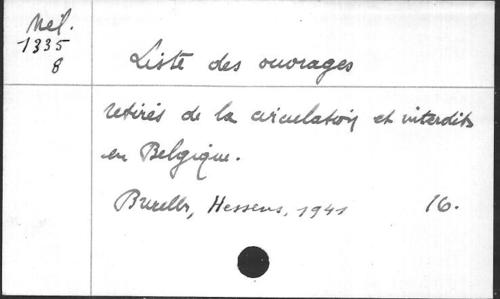 Mél.
1335
8
Liste des ouvrages
retirés de la circulation et interdits
en Belgique.
Bruxelles, Hessens, 1941 16.